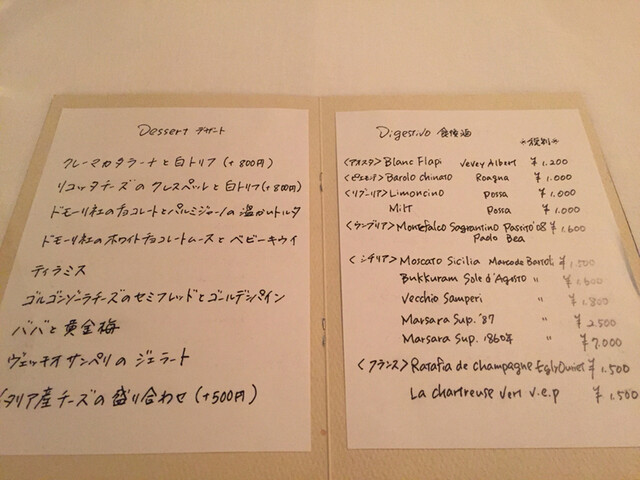 Dessert デザート
クレーマカタラーナと白トリフ(+800円)
リコッタチーズのクレスペッレと白トリフ(+800円)
ドモーリ社のチョコレートとパルミジャーノの温かいトルタ
ドモーリ社のホワイトチョコレートムースとベビーキウイ
ティラミス
ゴルゴンゾーラチーズのセミフレッドとゴールデンパイン
ババと黄金梅
ヴェッキオサンペリのジェラート
イタリア産チーズの盛り合わせ(+500円)
Digestivo 食後酒
*税別*
<アオスタ> Blanc Flapi Vevey Albert ¥1.200
<ピエモンテ> Barolo chinato Roagna ¥1.000
<リグーリア> Limoncino Possa ¥1.000
Mirt Possa ¥1.000
<ウンブリア> Montefalco Sagrantino Passito'08 ¥1.600
Paolo Bea
<シチリア> Moscato Sicilia Marco de Bartoli ¥1.500
Bukkuram Sole d'Agosto 〃 ¥1.600
Vecchio Samperi 〃 ¥1.800
Marsara Sup. '87 〃 ¥2.500
Marsara Sup. 1860年 ¥7.000
<フランス> Ratafia de champagne Egly Ouriet ¥1.500
La chartreuse Vert v.e.p ¥1.500